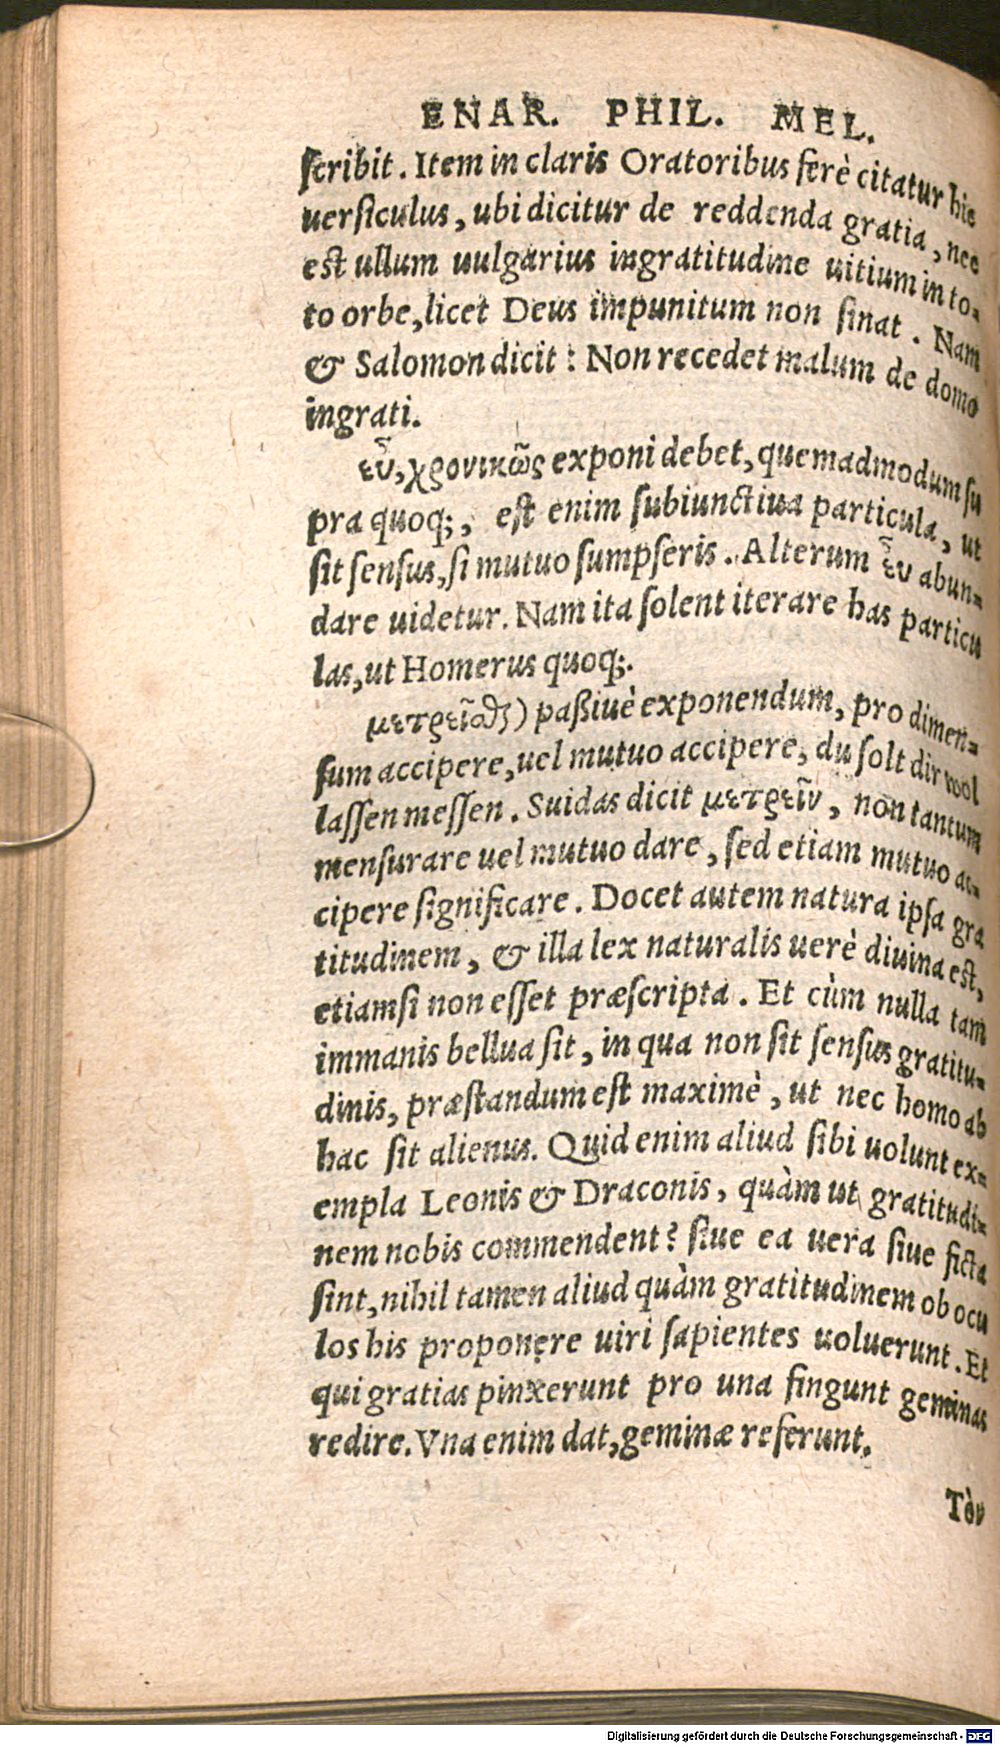 ENAR. PHIL. MEL.
ſcribit. Item in claris Oratoribus ferè citatur hic
uerſiculus, ubi dicitur de reddenda gratia, nec
est ullum uulgarius ingratitudine uitium in to-
to orbe, licet Deus impunitum non ſinat. Nam
& Salomon dicit: Non recedet malum de domo
ingrati.
εὖ, χρονικῶς exponi debet, quemadmodum ſu
pra quoq;, eſt enim ſubiunctiua particula, ut
ſit ſenſus, ſi mutuo ſumpſeris. Alterum εὖ abun-
dare uidetur. Nam ita ſolent iterare has particu
las, ut Homerus quoq;.
μετρεῖσθς) paßiuè exponendum, pro dimen-
ſum accipere, uel mutuo accipere, du ſolt dir wol
laſſen meſſen. Suidas dicit μετρεῖν, non tantum
menſurare uel mutuo dare, ſed etiam mutuo ac-
cipere ſignificare. Docet autem natura ipſa gra
titudinem, & illa lex naturalis uerè diuina est,
etiamſi non eſſet præſcripta. Et cùm nulla tam
immanis bellua ſit, in qua non ſit ſenſus gratitu-
dinis, præſtandum eſt maximè, ut nec homo ab
hac ſit alienus. Quid enim aliud ſibi uolunt ex-
empla Leonis & Draconis, quàm ut gratitudi-
nem nobis commendent? ſiue ea uera ſiue ficta
ſint, nihil tamen aliud quàm gratitudinem ob ocu
los his proponere uiri ſapientes uoluerunt. Et
qui gratias pinxerunt pro una fingunt geminas
redire. Vna enim dat, geminæ referunt.
Τὸν
Digitalisierung gefördert durch die Deutsche Forschungsgemeinschaft - DFG